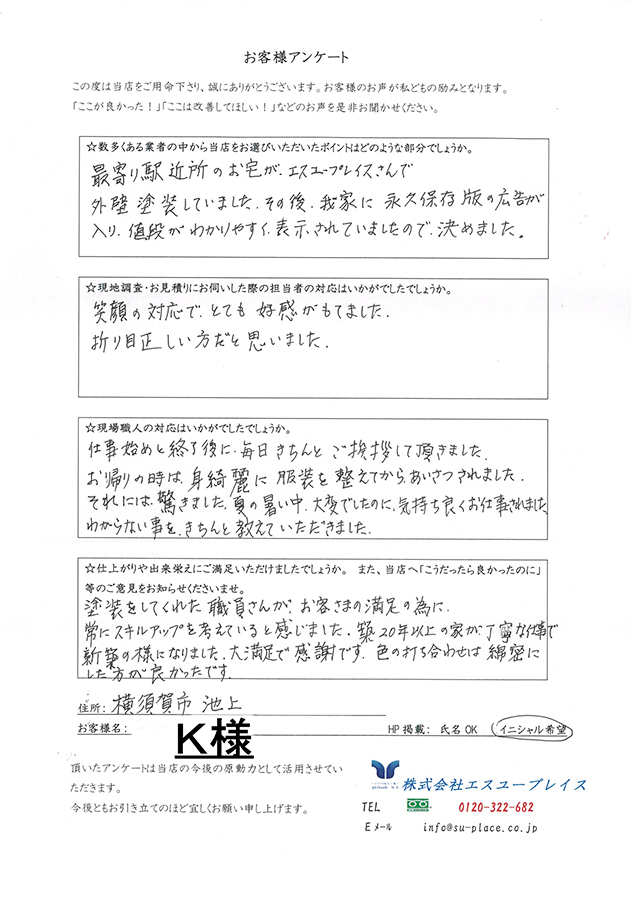 お客様アンケート
この度は当店をご用命下さり、誠にありがとうございます。お客様のお声が私どもの励みとなります。
「ここが良かった！」「ここは改善してほしい！」などのお声を是非お聞かせください。
☆数多くある業者の中から当店をお選びいただいたポイントはどのような部分でしょうか。
最寄り駅近所のお宅が、エスユープレイスさんで
外壁塗装していました。その後、我家に永久保存版の広告が
入り、値段がわかりやすく、表示されていましたので、決めました。
☆現地調査・お見積りにお伺いした際の担当者の対応はいかがでしたでしょうか。
笑顔の対応で、とても好感がもてました。
折り目正しい方だと思いました。
☆現場職人の対応はいかがでしたでしょうか。
仕事始めと終了後に、毎日きちんとご挨拶して頂きました。
お帰りの時は、身綺麗に服装を整えてから、あいさつされました。
それには、驚きました。夏の暑い中、大変でしたのに、気持ち良くお仕事されました。
わからない事を、きちんと教えていただきました。
☆仕上がりや出来栄えにご満足いただけましたでしょうか。 また、当店へ「こうだったら良かったのに」
等のご意見をお知らせくださいませ。
塗装をしてくれた職員さんが、お客さまの満足の為に、
常にスキルアップを考えていると感じました。築20年以上の家が、丁寧な仕事で
新築の様になりました。大満足で感謝です。色の打ち合わせは綿密に
した方が良かったです。
住所: 横須賀市 池上
お客様名: K様 HP掲載: 氏名OK イニシャル希望
頂いたアンケートは当店の今後の原動力として活用させてい
ただきます。
今後ともお引き立てのほど宜しくお願い申し上げます。
株式会社エスユープレイス
TEL 0120-322-682
Eメール info@su-place.co.jp